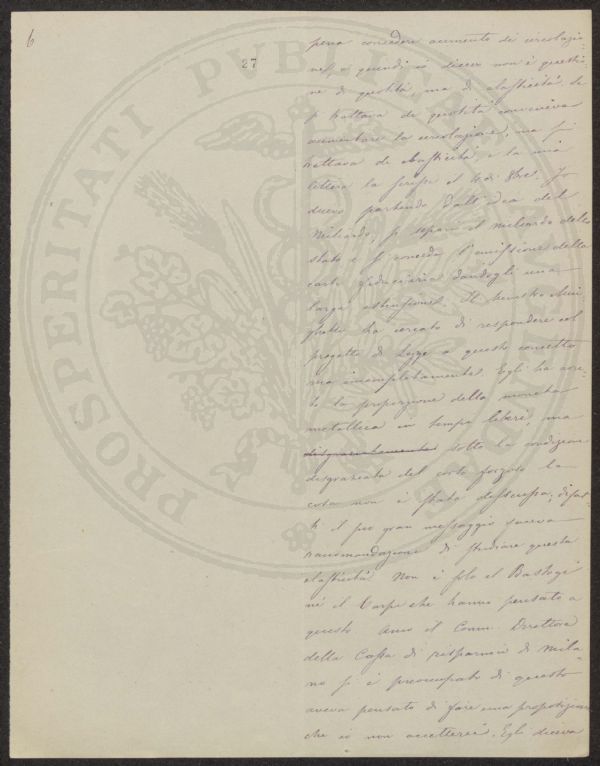 6
27
PROSPERITATI PVBLICAE
pena concedere aumento di circolazio-
ne, e quindi io diceva non è questio-
ne di quantità, ma di elasticità. Se
si trattava di quantità conveniva
aumentare la circolazione, ma si
trattava di elasticità, e la mia
lettera la scrissi il 8bre. Io
diceva partendo dall'idea del
miliardo, si separi il miliardo dello
stato e si conceda l'emissione della
carta fiduciaria dandogli una
larga estensione. Il ministro Min
ghetti ha cercato di rispondere col
progetto di legge a questo concetto
ma incompletamente. Egli ha
la proporzione della moneta
metallica in tempi liberi, ma
disgraziatamente sotto la condizione
disgraziata del corso forzoso la
cosa non è stata discussa; difat-
ti il più gran messaggio
raccomandazione di studiare questa
elasticità. Non è solo il Bastogi
nè il Carpi che hanno pensato a
questo. Anco il Comm. Direttore
della Cassa di risparmio di Mila-
no si è preoccupato di questo
aveva pensato di fare una proposizione
che io non accetterei. Egli diceva